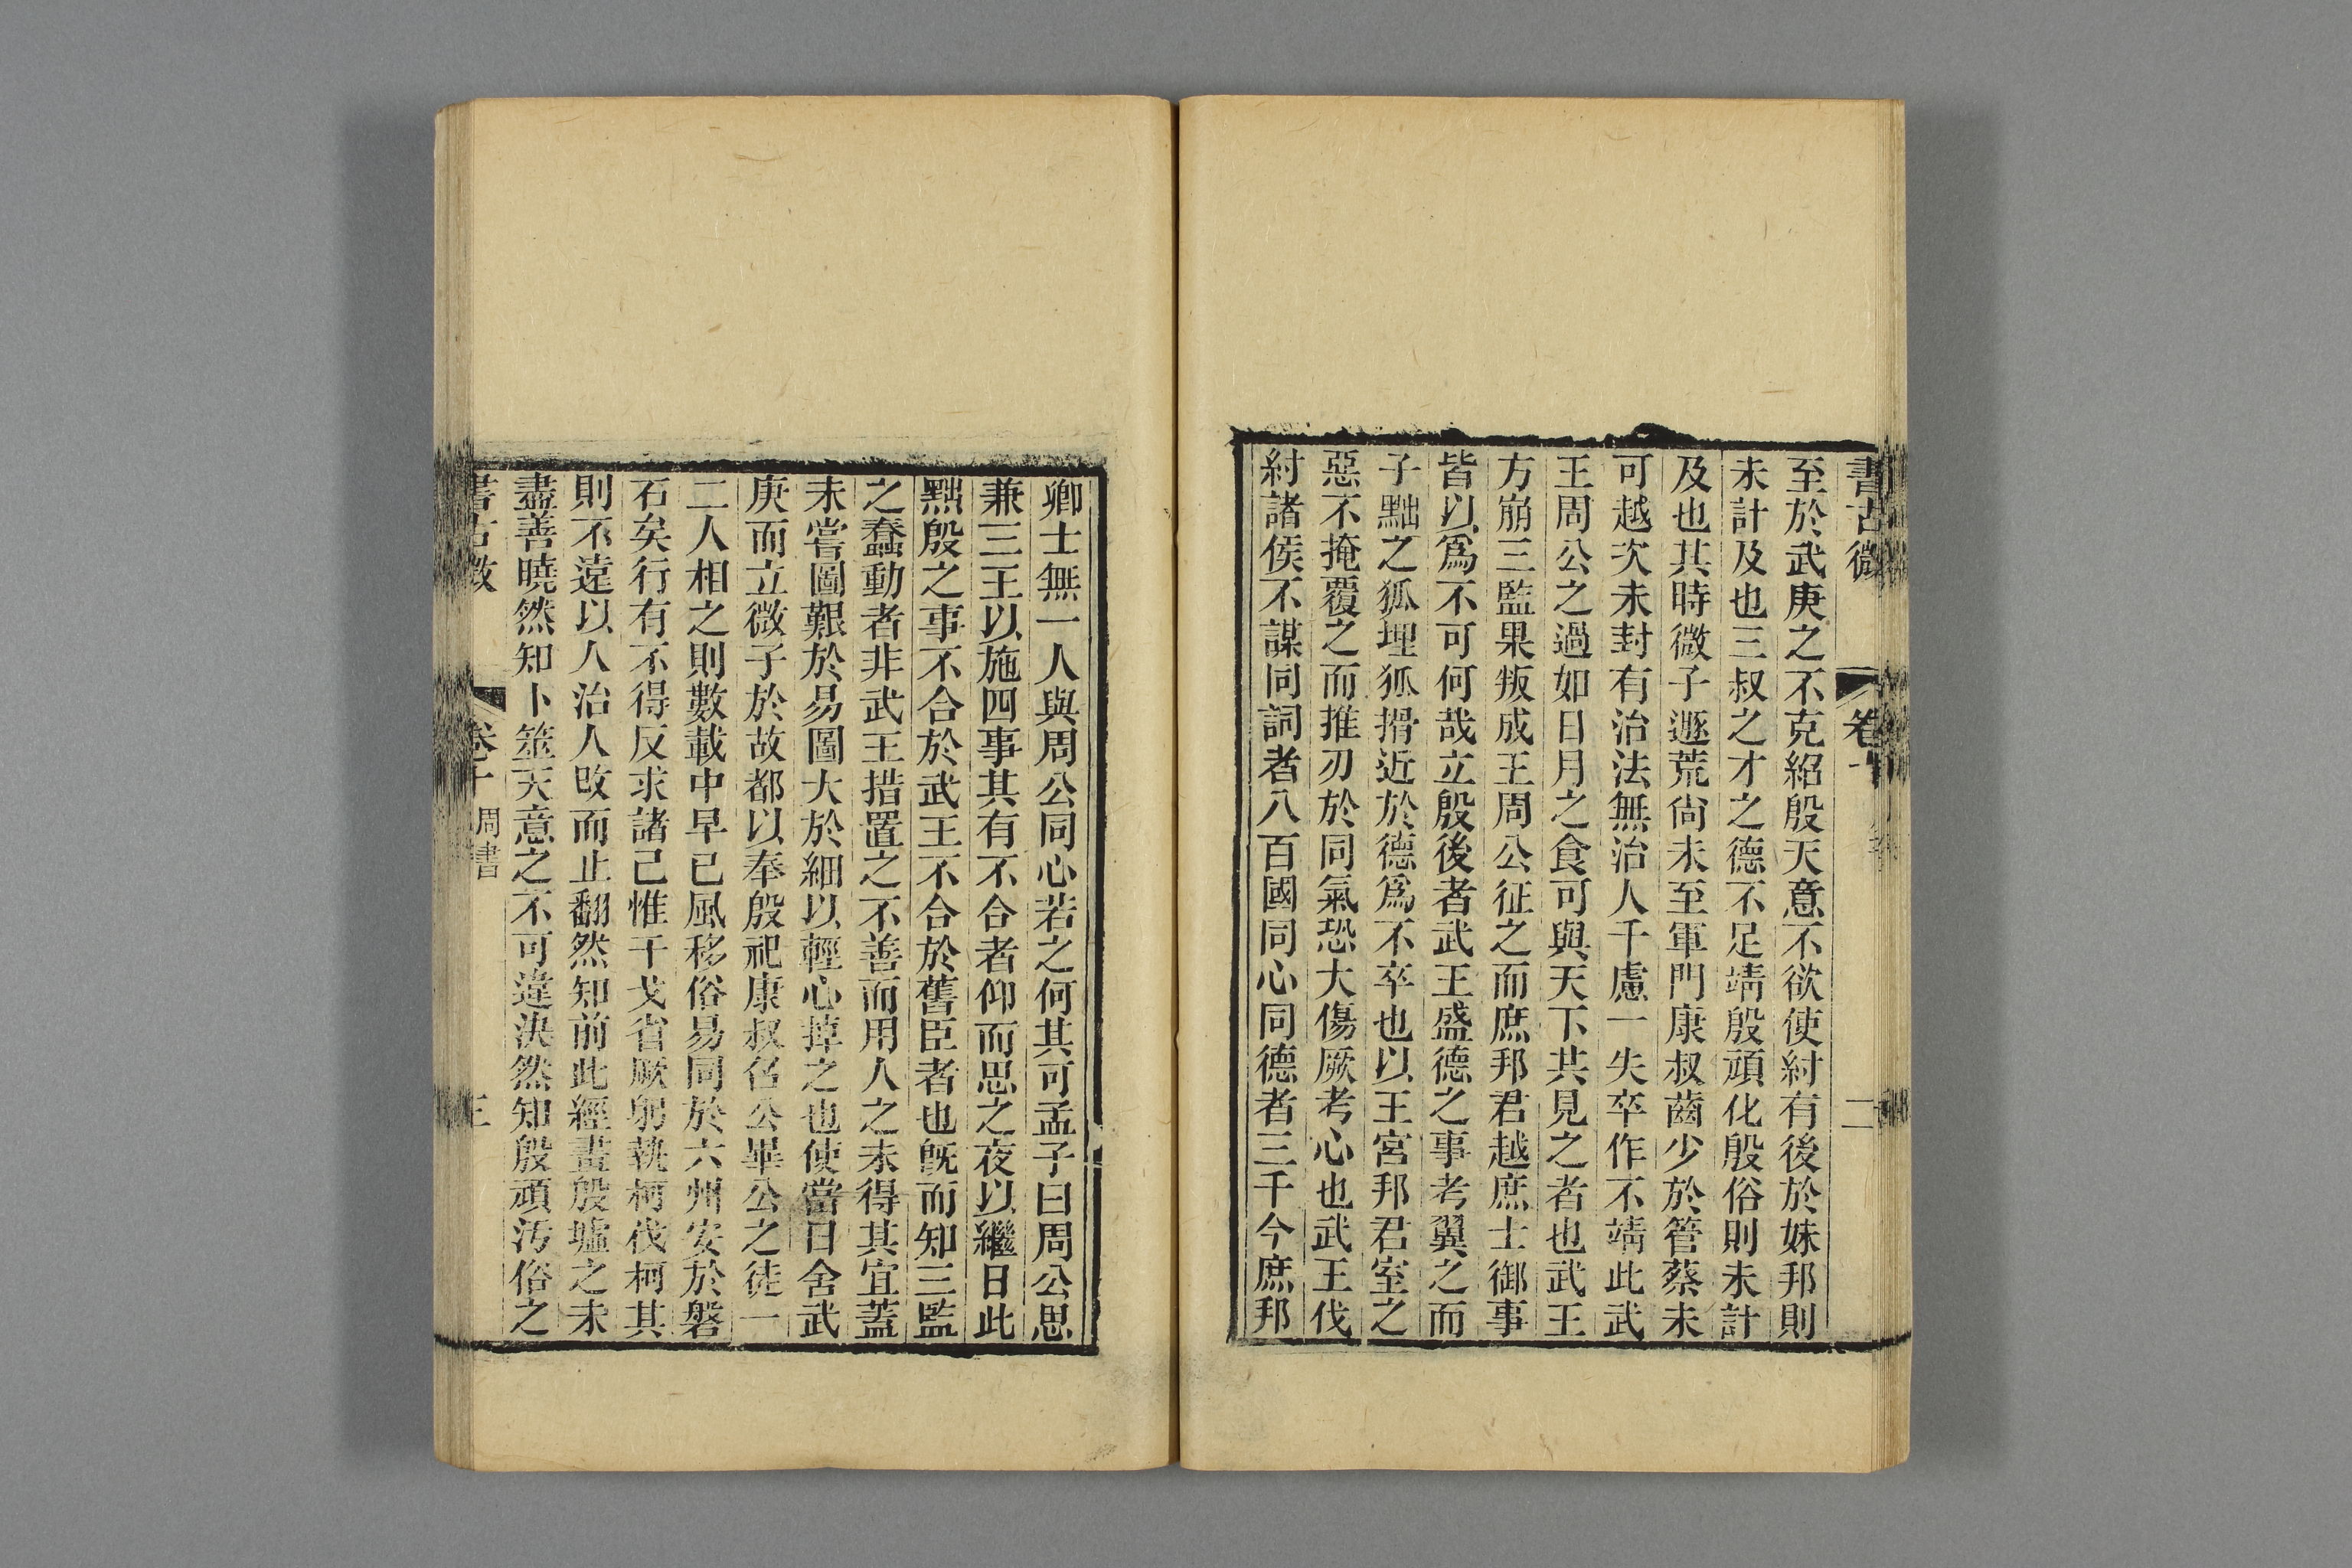 書古微 卷十 二
至於武庚之不克紹殷天意不欲使紂有後於妹邦則
未計及也三叔之才之德不足靖殷頑化殷俗則未計
及也其時微子遯荒尙未至軍門康叔齒少於管蔡未
可越次未封有治法無治人千慮一失卒作不靖此武
王周公之過如日月之食可與天下共見之者也武王
方崩三監果叛成王周公征之而庶邦君越庶士御事
皆以爲不可何哉立殷後者武王盛德之事考翼之而
子黜之狐埋狐搰近於德爲不卒也以王宮邦君室之
惡不掩覆之而推刃於同氣恐大傷厥考心也武王伐
紂諸侯不謀同詞者八百國同心同德者三千今庶邦
卿士無一人與周公同心若之何其可孟子曰周公思
兼三王以施四事其有不合者仰而思之夜以繼日此
黜殷之事不合於武王不合於舊臣者也旣而知三監
之蠢動者非武王措置之不善而用人之未得其宜蓋
未嘗圖艱於易圖大於細以輕心掉之也使當日舍武
庚而立微子於故都以奉殷祀康叔召公畢公之徒一
二人相之則數載中早已風移俗易同於六州安於磐
石矣行有不得反求諸己惟干戈省厥躬執柯伐柯其
則不遠以人治人改而止翻然知前此經畫殷墟之未
盡善曉然知卜筮天意之不可違決然知殷頑汚俗之
書古微 卷十 周書 三